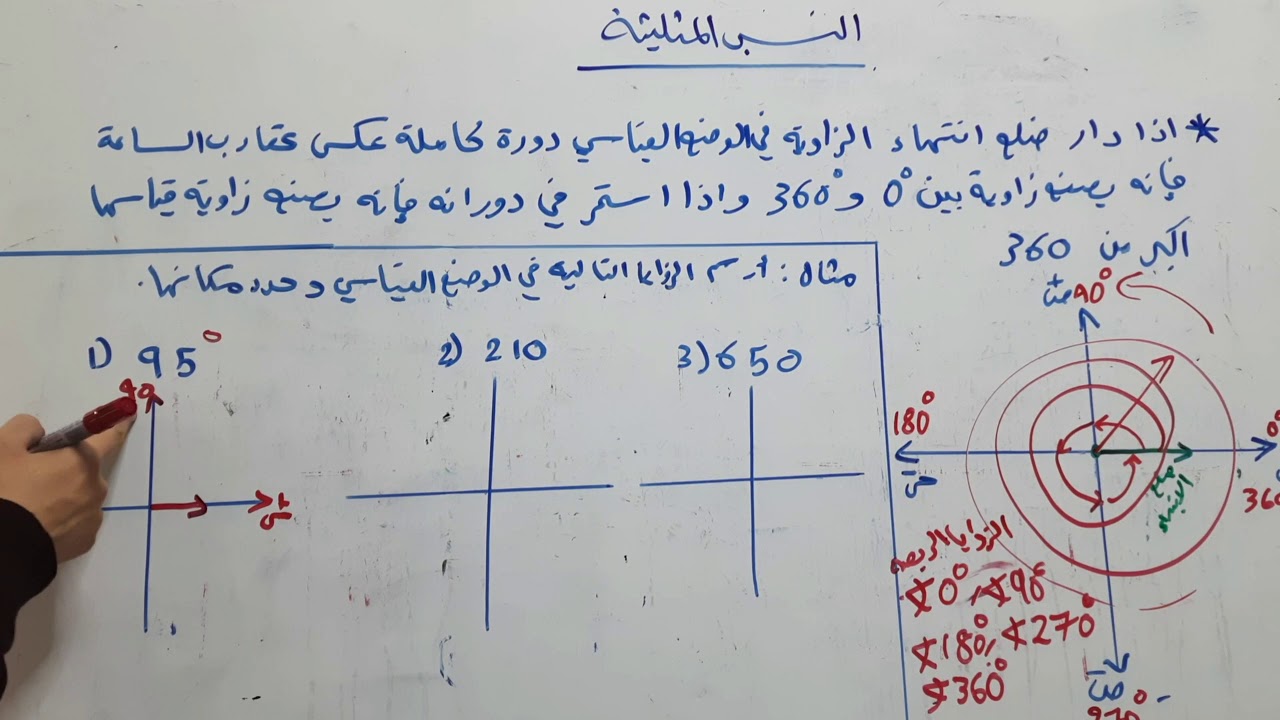 النسب المثلثية
* اذا دار ضلع انتهاء الزاوية في الوضع القياسي دورة كاملة عكس عقارب الساعة
فإنه يصنع زاوية بين 0° و 360° واذا استمر في دورانه فإنه يصنع زاوية قياسها
اكبر من 360
مثال : ارسم الزوايا التالية في الوضع القياسي وحدد مكانها.
1) 95°
2) 210
3) 650
90
90°
180°
0°
360
ضلع
الزوايا الربعية
∢0° , ∢90°
∢180° , ∢270°
∢360°